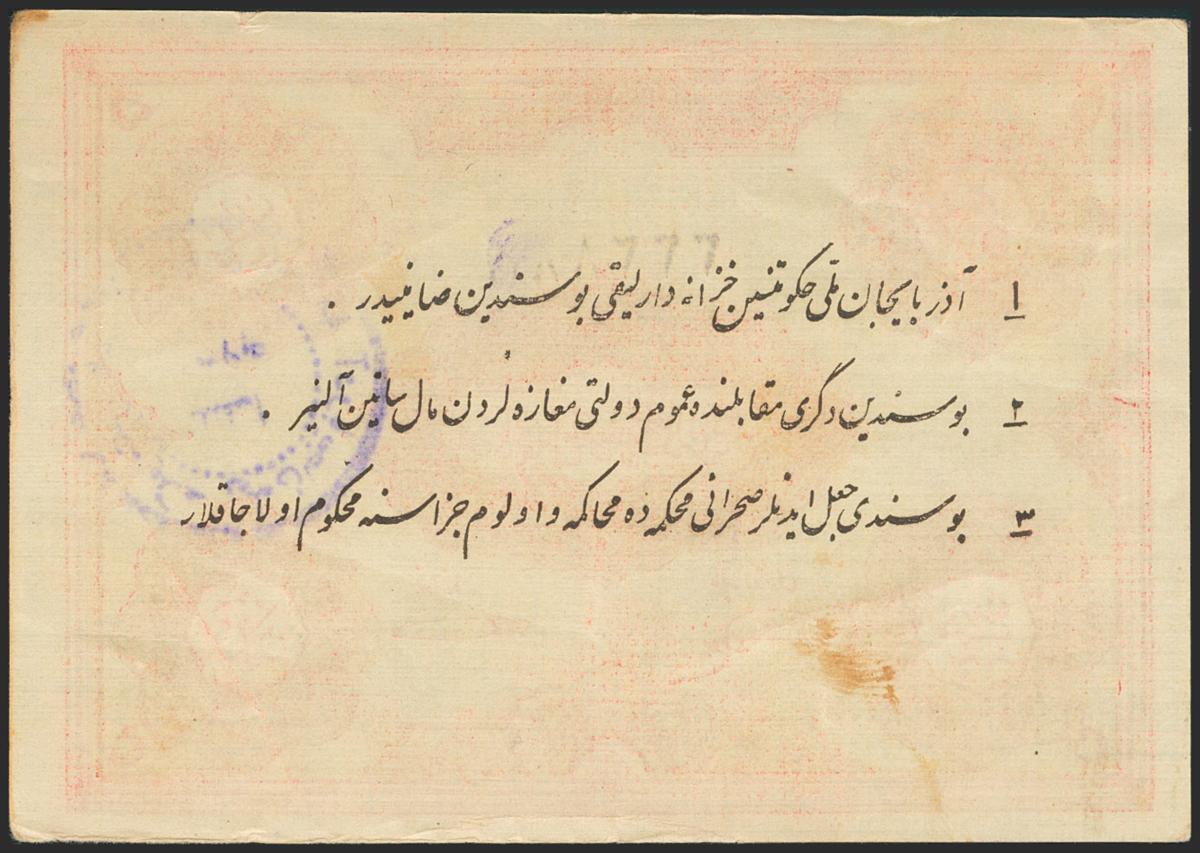 ۱ آذربایجان ملّی حکومتینین خزانه دارلیقی بو سندین ضامینیدر .
۲ بو سندین دگری مقابلنده عموم دولتی مغازه لردن مال ساتین آلنیر .
۳ بو سندی جعل ایدنلر صحرائی محکمه ده محاکمه و اولوم جزاسنه محکوم اولاجاقلار